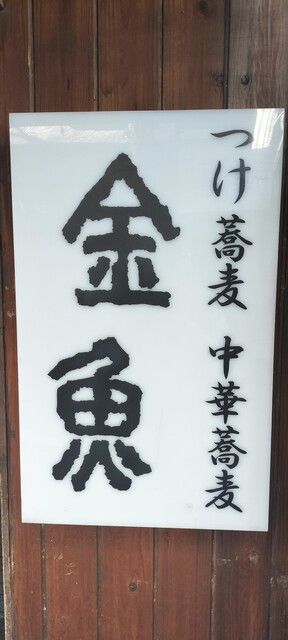 つけ蕎麦 中華蕎麦
金魚